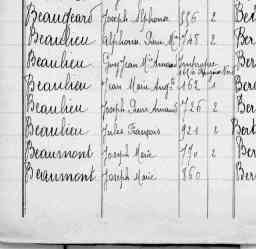 Beaugeard Joseph Alphonse 336 2 Be
Beaulieu Alphonse Pierre Mie 748 2 Be
Beaulieu Guy Jean Mie Ber
Beaulieu Jean Marie Augte 162 1 Ber
Beaulieu Joseph Pierre Armand 726 2 Ber
Beaulieu Jules François 921 2 Bert
Beaumont Joseph Marie 170 2 Ber
Beaumont Joseph Marie 860 Ber